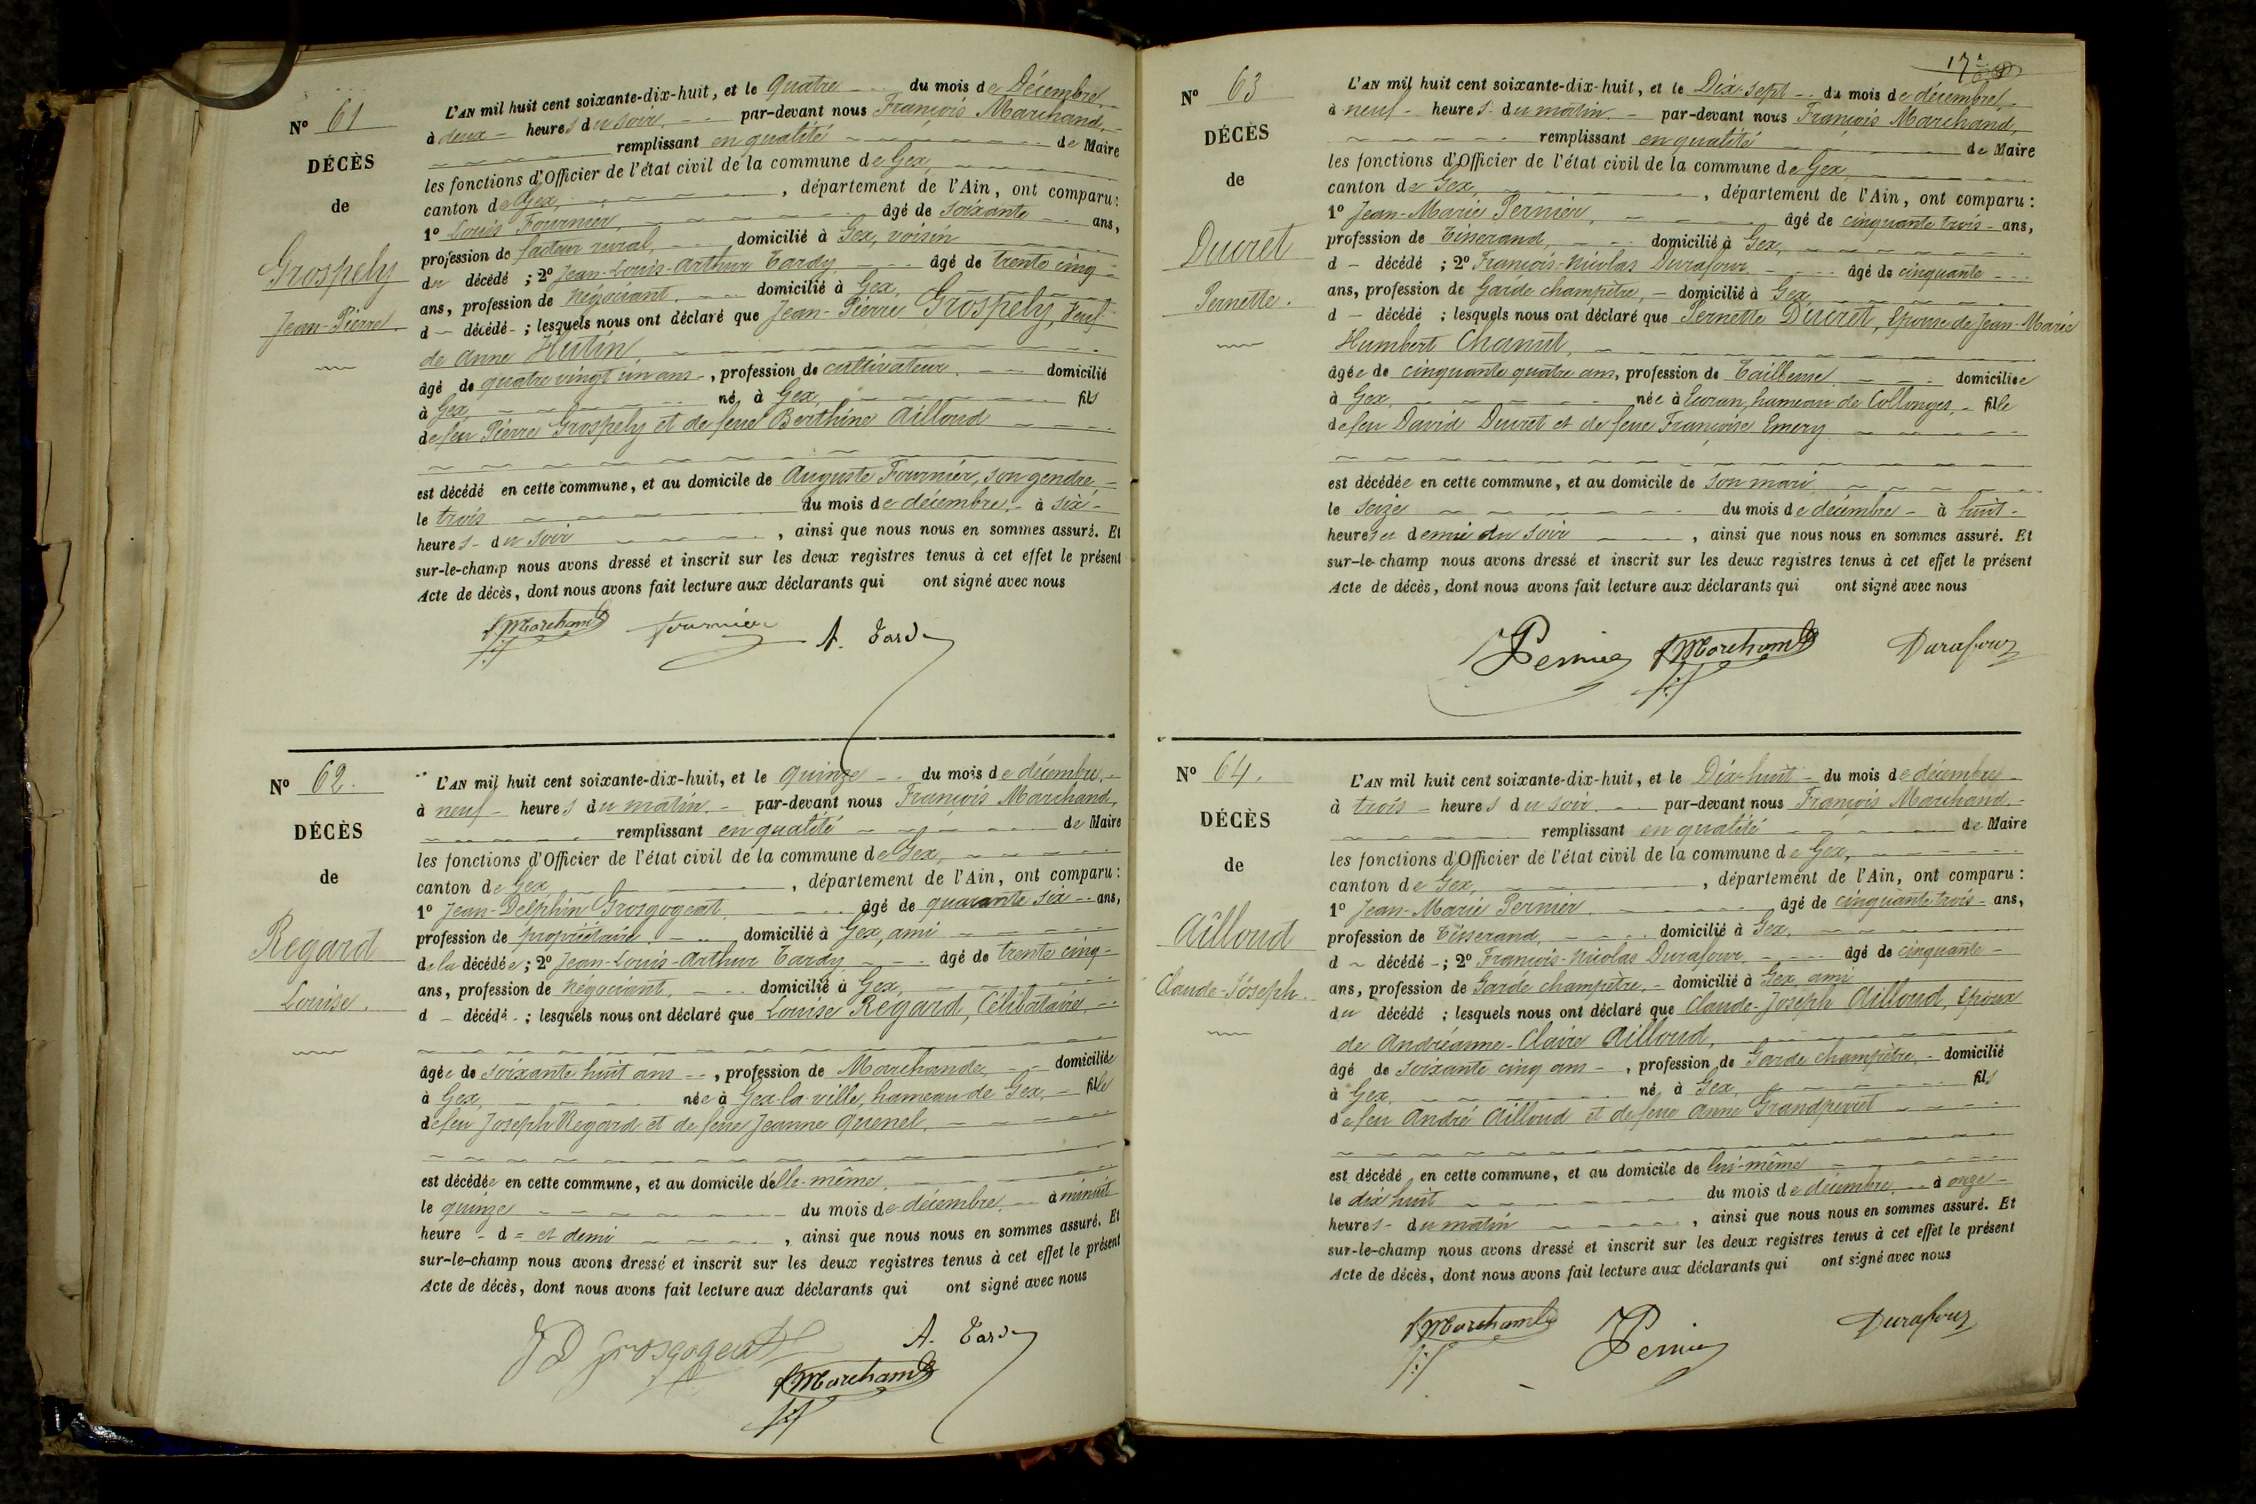 Nº 61
DÉCÈS
de
Grospely
Jean-Pierre.
L'AN mil huit cent soixante-dix-huit, et le Quatre du mois de Décembre,
à deux heures du soir, par-devant nous François Marchand,
remplissant en qualité de Maire
les fonctions d'Officier de l'état civil de la commune de Gex,
canton de Gex, département de l'Ain, ont comparu:
1º Louis Fournier, âgé de soixante ans,
profession de facteur rural, domicilié à Gex, voisin
du décédé; 2º Jean-Louis-Arthur Tardy âgé de trente cinq
ans, profession de négociant, domicilié à Gex,
d décédé; lesquels nous ont déclaré que Jean-Pierre Grospely, Veuf
de Anne Hutin,
âgé de quatre vingt un ans, profession de cultivateur, domicilié
à Gex, né à Gex, fils
de feu Pierre Grospely et de feue Berthine Ailloud
est décédé en cette commune, et au domicile de Auguste Fournier, son gendre
le trois du mois de décembre à six
heures du soir, ainsi que nous nous en sommes assuré. Et
sur-le-champ nous avons dressé et inscrit sur les deux registres tenus à cet effet le présent
Acte de décès, dont nous avons fait lecture aux déclarants qui ont signé avec nous
f Marchand Fournier A. Tardy
Nº 62.
DÉCÈS
de
Regard
Louise.
L'AN mil huit cent soixante-dix-huit, et le quinze du mois de décembre,
à neuf heures du matin, par-devant nous François Marchand,
remplissant en qualité de Maire
les fonctions d'Officier de l'état civil de la commune de Gex,
canton de Gex, département de l'Ain, ont comparu:
1º Jean-Delphin Grosgogeat, âgé de quarante six ans,
profession de propriétaire, domicilié à Gex, ami
de la décédée; 2º Jean-Louis-Arthur Tardy âgé de trente cinq
ans, profession de négociant, domicilié à Gex,
d décédé; lesquels nous ont déclaré que Louise Regard, Célibataire,
âgée de soixante huit ans, profession de Marchande, domiciliée
à Gex, née à Gex-la-ville, hameau de Gex, fille
de feu Joseph Regard et de feue Jeanne Quenel,
est décédée en cette commune, et au domicile d'elle-même,
le quinze du mois de décembre, à minuit
heure d et demi, ainsi que nous nous en sommes assuré. Et
sur-le-champ nous avons dressé et inscrit sur les deux registres tenus à cet effet le présent
Acte de décès, dont nous avons fait lecture aux déclarants qui ont signé avec nous
JD Grosgogeat A. Tardy
f Marchand
Nº 63
DÉCÈS
de
Ducret
Pernette.
L'AN mil huit cent soixante-dix-huit, et le Dix-sept du mois de décembre,
à neuf heures du matin, par-devant nous François Marchand,
remplissant en qualité de Maire
les fonctions d'Officier de l'état civil de la commune de Gex,
canton de Gex, département de l'Ain, ont comparu:
1º Jean-Marie Pernier, âgé de cinquante trois ans,
profession de Tisserand, domicilié à Gex,
d décédé; 2º François-Nicolas Durafour âgé de cinquante
ans, profession de Garde champêtre, domicilié à Gex,
d décédé; lesquels nous ont déclaré que Pernette Ducret, Epouse de Jean-Marie
Humbert Chanut,
âgée de cinquante quatre ans, profession de Tailleuse, domiciliée
à Gex, née à Ecoran, hameau de Collonges, fille
de feu David Ducret et de feue Françoise Emery
est décédée en cette commune, et au domicile de son mari
le seize du mois de décembre à huit
heures et demie du soir, ainsi que nous nous en sommes assuré. Et
sur-le-champ nous avons dressé et inscrit sur les deux registres tenus à cet effet le présent
Acte de décès, dont nous avons fait lecture aux déclarants qui ont signé avec nous
Pernier f Marchand Durafour
Nº 64.
DÉCÈS
de
Ailloud
Claude-Joseph.
L'AN mil huit cent soixante-dix-huit, et le Dix-huit du mois de décembre
à trois heures du soir, par-devant nous François Marchand,
remplissant en qualité de Maire
les fonctions d'Officier de l'état civil de la commune de Gex,
canton de Gex, département de l'Ain, ont comparu:
1º Jean-Marie Pernier, âgé de cinquante trois ans,
profession de Tisserand, domicilié à Gex,
d décédé; 2º François-Nicolas Durafour, âgé de cinquante
ans, profession de Garde champêtre, domicilié à Gex, ami
du décédé; lesquels nous ont déclaré que Claude-Joseph Ailloud, Epoux
de Andréanne-Claire Ailloud,
âgé de soixante cinq ans, profession de Garde champêtre, domicilié
à Gex, né à Gex, fils
de feu André Ailloud et de feue Anne Grandperret
est décédé en cette commune, et au domicile de lui-même
le dix huit du mois de décembre, à onze
heures du matin, ainsi que nous nous en sommes assuré. Et
sur-le-champ nous avons dressé et inscrit sur les deux registres tenus à cet effet le présent
Acte de décès, dont nous avons fait lecture aux déclarants qui ont signé avec nous
f Marchand Pernier Durafour